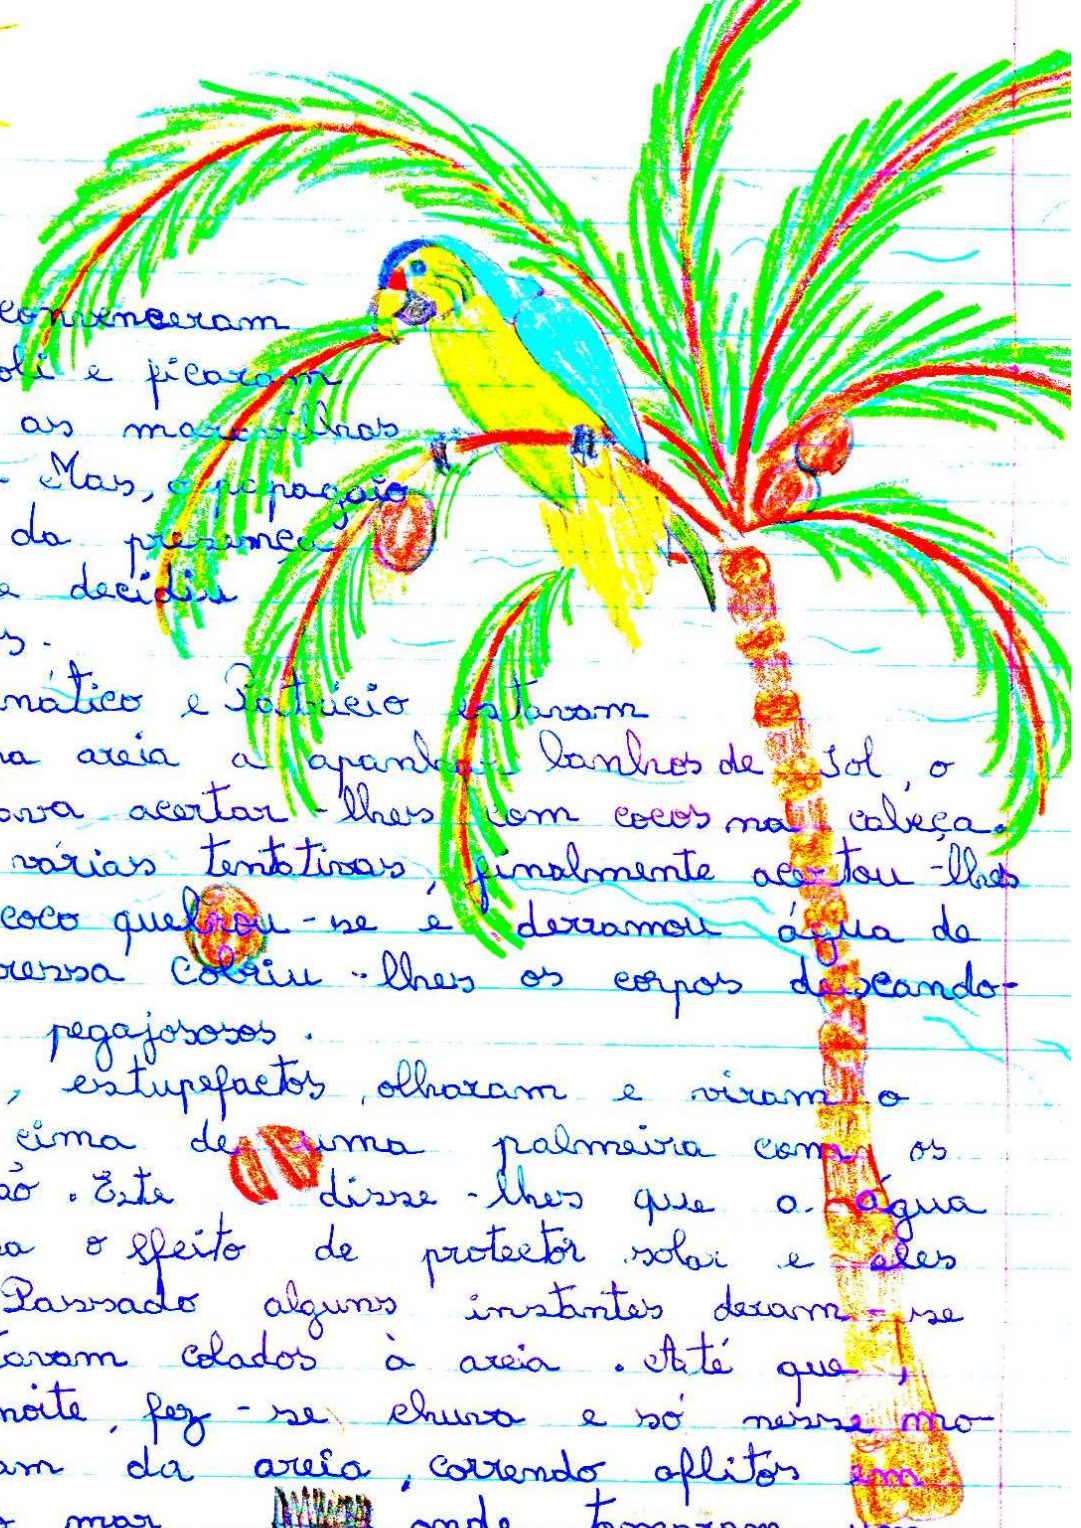 convenceram
e ficaram
as maravilhas
Mas, o papagaio
da presença
decidiu
e Patrício estavam
areia a apanhar banhos de Sol, o
acertar-lhes com cocos na cabeça.
várias tentativas, finalmente acertou-lhes
coco quebrou-se e derramou água de
cobriu-lhes os corpos deixando-
pegajososos.
, estupefactos, olharam e viram o
cima de uma palmeira com os
. Este disse-lhes que a água
o efeito de protector solar e eles
Passado alguns instantes deram-se
colados à areia. Até que,
noite, fez-se chuva e só nesse mo-
da areia, correndo aflitos em
mar onde